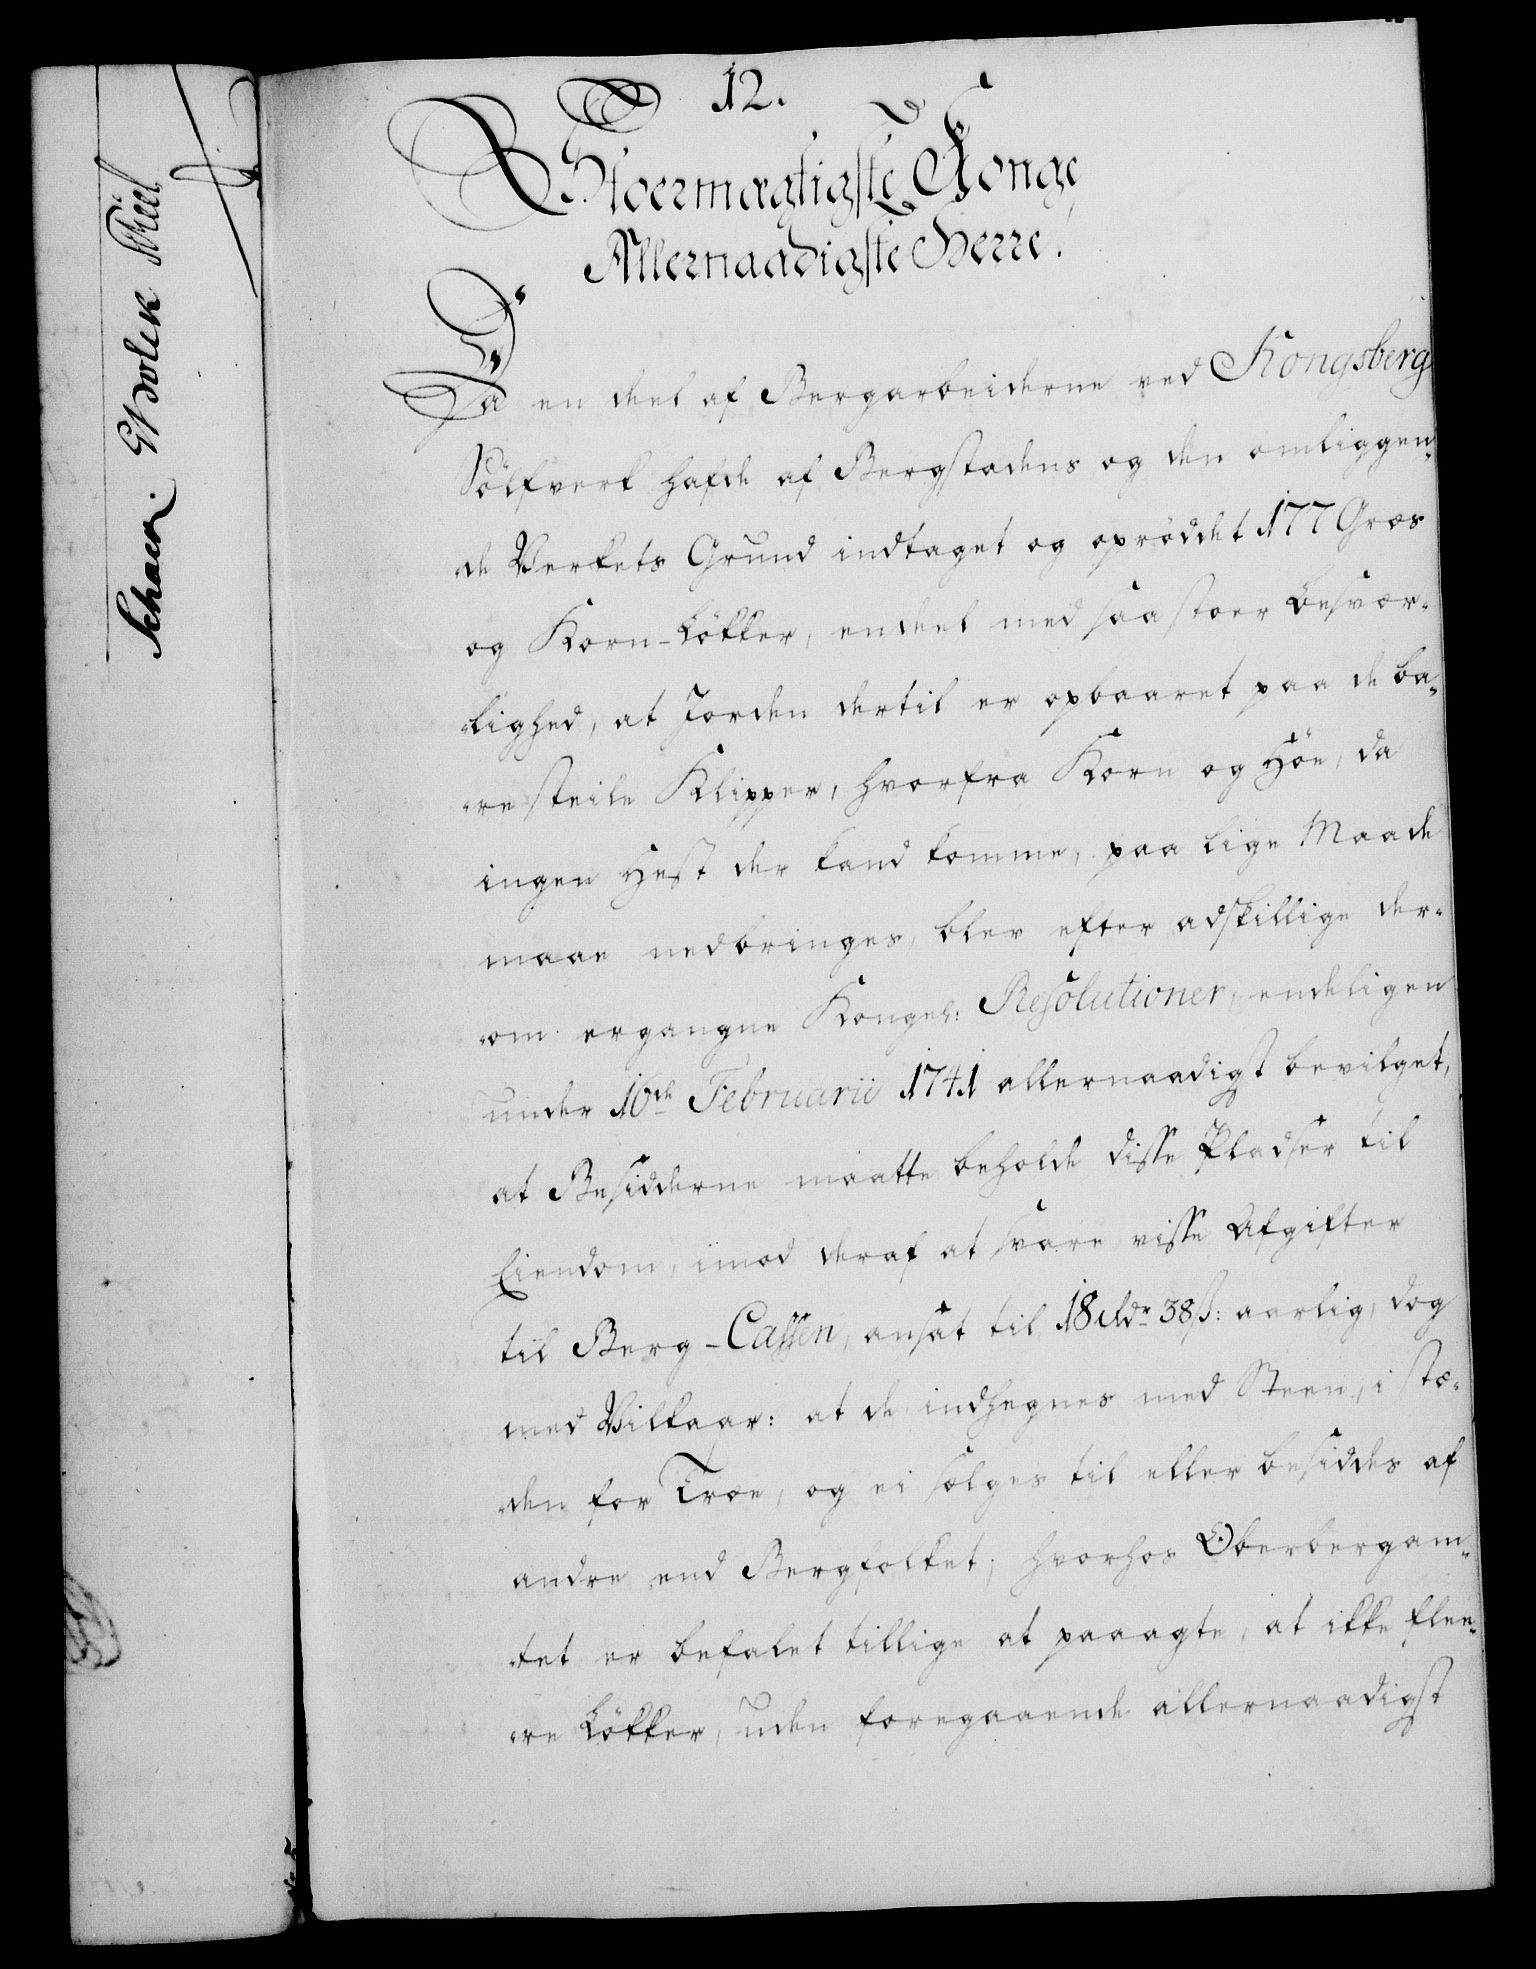 12.
Stoermægtigste Konge,
Allernaadigste Herre!
Da en deel af Bergarbeiderne ved Kongsberg
Sölfverk hafde af Bergstadens og den omliggen-
de Verkets Grund indtaget og oprøddet 177 Græs
og Korn-Løkker, endeel med saa stoer besvær-
lighed, at Jorden dertil er opbaaret paa de ba-
re steile Klipper, hvorfra Korn og Høe, da
ingen Hest der kand komme, paa lige Maade
maae nedbringes, blev efter adskillige der-
om ergangne Kongel: Resolutioner, endeligen
under 16de Februarii 1741 allernaadigst bevilget,
at Besidderne maatte beholde disse Pladser til
Eiendom, imod deraf at svare visse Afgifter
til Berg-Cassen, ansat til 18 Rdr 38 ß: aarlig, dog
med Vilkaar: at de indhegnes med Steen, i stæ-
den for Træe, og ei sælges til eller besiddes af
andre end Bergfolket; hvorhos Oberbergam-
tet er befalet tillige at paaagte, at ikke flee-
re Løkker, uden foregaaende allernaadigst